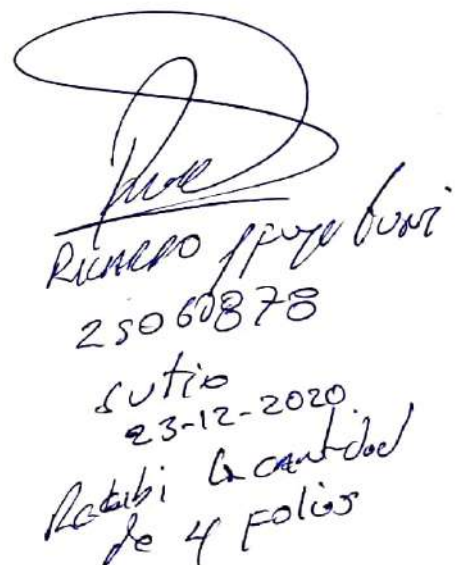 RICARDO
25060878
sutio
23-12-2020
Recibi la cantidad
de 4 folios